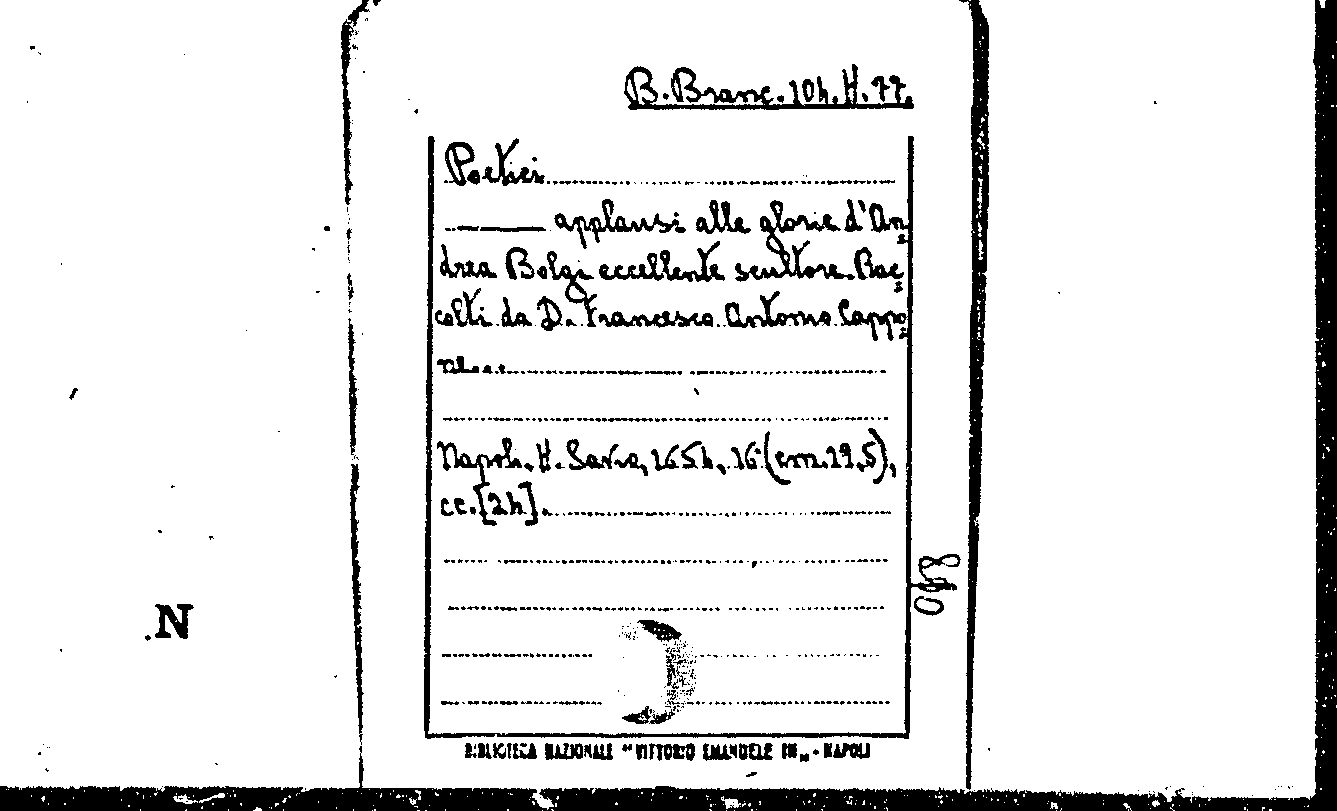 B. Branc. 104. H. 77.
Poetici
______ applausi alle glorie d'An=
drea Bolgi eccellente scultore. Rac=
colti da D. Francesco Antonio Cappo=
ni...
Napoli. H. Savio, 1654, 16 (cm. 19,5),
cc. [24].
N
BIBLIOTECA NAZIONALE "VITTORIO EMANUELE III" - NAPOLI